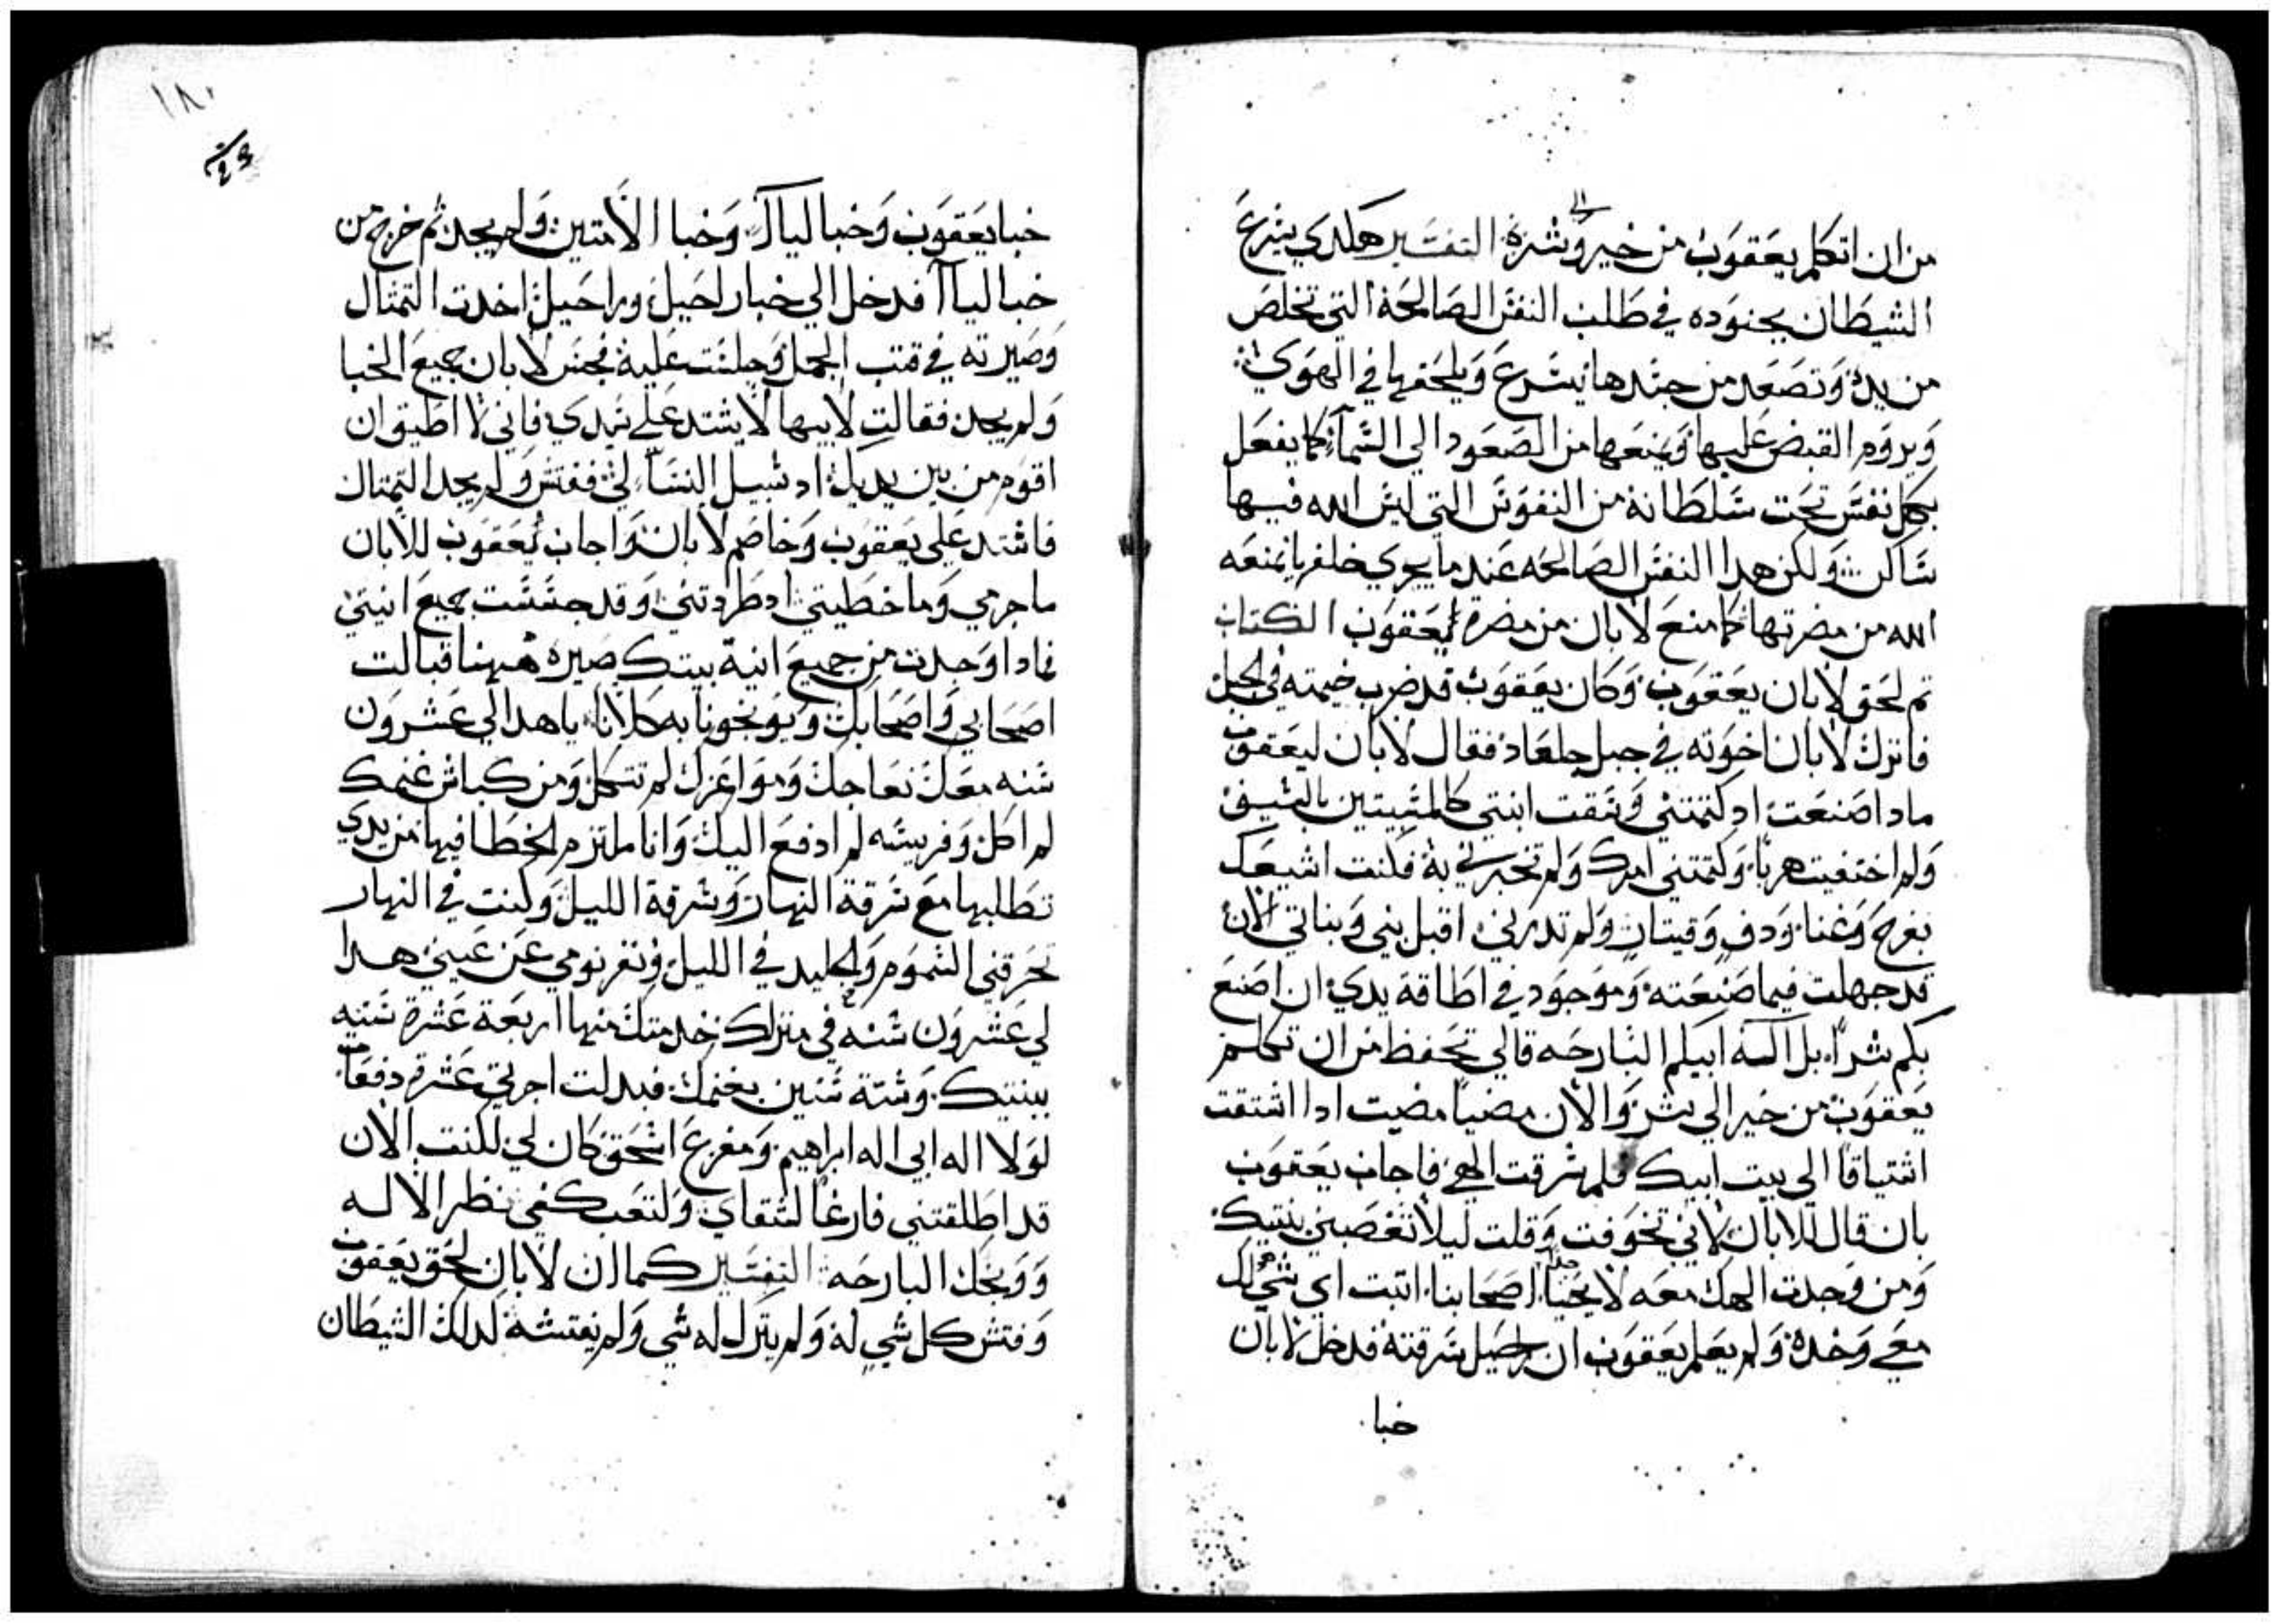 من ان اتكلم يعقوب من خير وشره التفسير هكدي يسرع
الي
الشيطان بجنوده في طلب النفس الصالحة التي تخلص
من يده وتصعد من جسدها يسرع ويلحقها في الهوي
ويروم القبض عليها ويمنعها من الصعود الي السماء كما يفعل
بكل نفس تحت سلطانه من النفوس التي ليس الله فيها
ساكن ولكن هدا النفس الصالحه عند ما يجري خلفها يمنعه
الله من مضرتها كما منع لابان من مضرة يعقوب الكتاب
تم لحق لابان يعقوب وكان يعقوب قد ضرب خيمته في الجبل
فانزل لابان اخوته في جبل جلعاد فقال لابان ليعقوب
مادا صنعت اد كتمتني وسقت ابنتي كالمسبيتين بالسيف
ولم اختفيت هربا وكتمتني امرك ولم تخبرني به فكنت اشيعك
بفرح وغنا ودف وقيتار ولم تدرني اقبل بني وبناتي الان
قد جهلت فيما صنعته وموجود في اطاقة يدي ان اصنع
بكم شرا بل اله ابيكم البارحه قالي تحفظ من ان تكلم
يعقوب من خير الي شر والان مضيا مضيت ادا اشتقت
اشتياقا الي بيت ابيك فلم سرقت الهي فاجاب يعقوب
بان قال للابان لاني تخوفت وقلت ليلا تغصبني بنتيك
ومن وجدت الهك معه لا يحيا اصحابنا اتبت اي شي لك
معي وخده ولم يعلم يعقوب ان راحيل سرقته فدخل لابان
خبا
١٨٠
خبا يعقوب وخبا ليا وخبا الامتين ولم يجد ثم خرج من
خبا ليا فدخل الي خبا راحيل وراحيل اخدت التمثال
وصيرته في قتب الجمل وجلست عليه فجس لابان جميع الخبا
ولم يجد فقالت لابيها لا يشتد علي سيدي فاني لا اطيق ان
اقوم من بين يديك اد سبيل النساء لي ففتش ولم يجد التمثال
فاشتد علي يعقوب وخاصم لابان واجاب يعقوب للابان
ما جرمي وما خطيتي اد طردتني وقد جسست جميع انيتي
فمادا وجدت من جميع انية بيتك صيره ههنا قبالت
اصحابي واصحابك ويوبخونا به كلانا يا هدا لي عشرون
سنه معك نعاجك ومواعزك لم تتكل ومن كباش غنمك
لم اكل وفريسه لم ادفع اليك وانا ملتزم الخطا فيها من يدي
تطلبها مع سرقة النهار وسرقة الليل وكنت في النهار
تحرقني السموم والجليد في الليل ونفر نومي عن عيني هدا
لي عشرون سنه في منزلك خدمتك منها اربعة عشرة سنه
ببنتيك وستة سنين بغنمك فبدلت اجرتي عشرة دفعات
لولا اله ابي اله ابراهيم ومفزع اسحق كان لي لكنت الان
قد اطلقتني فارغا لشقاي ولتعب كفي نظر الاله
ووبخك البارحه التفسير كما ان لابان لحق يعقوب
وفتش كل شي له ولم يترك له شي ولم يفتشه لدلك الشيطان